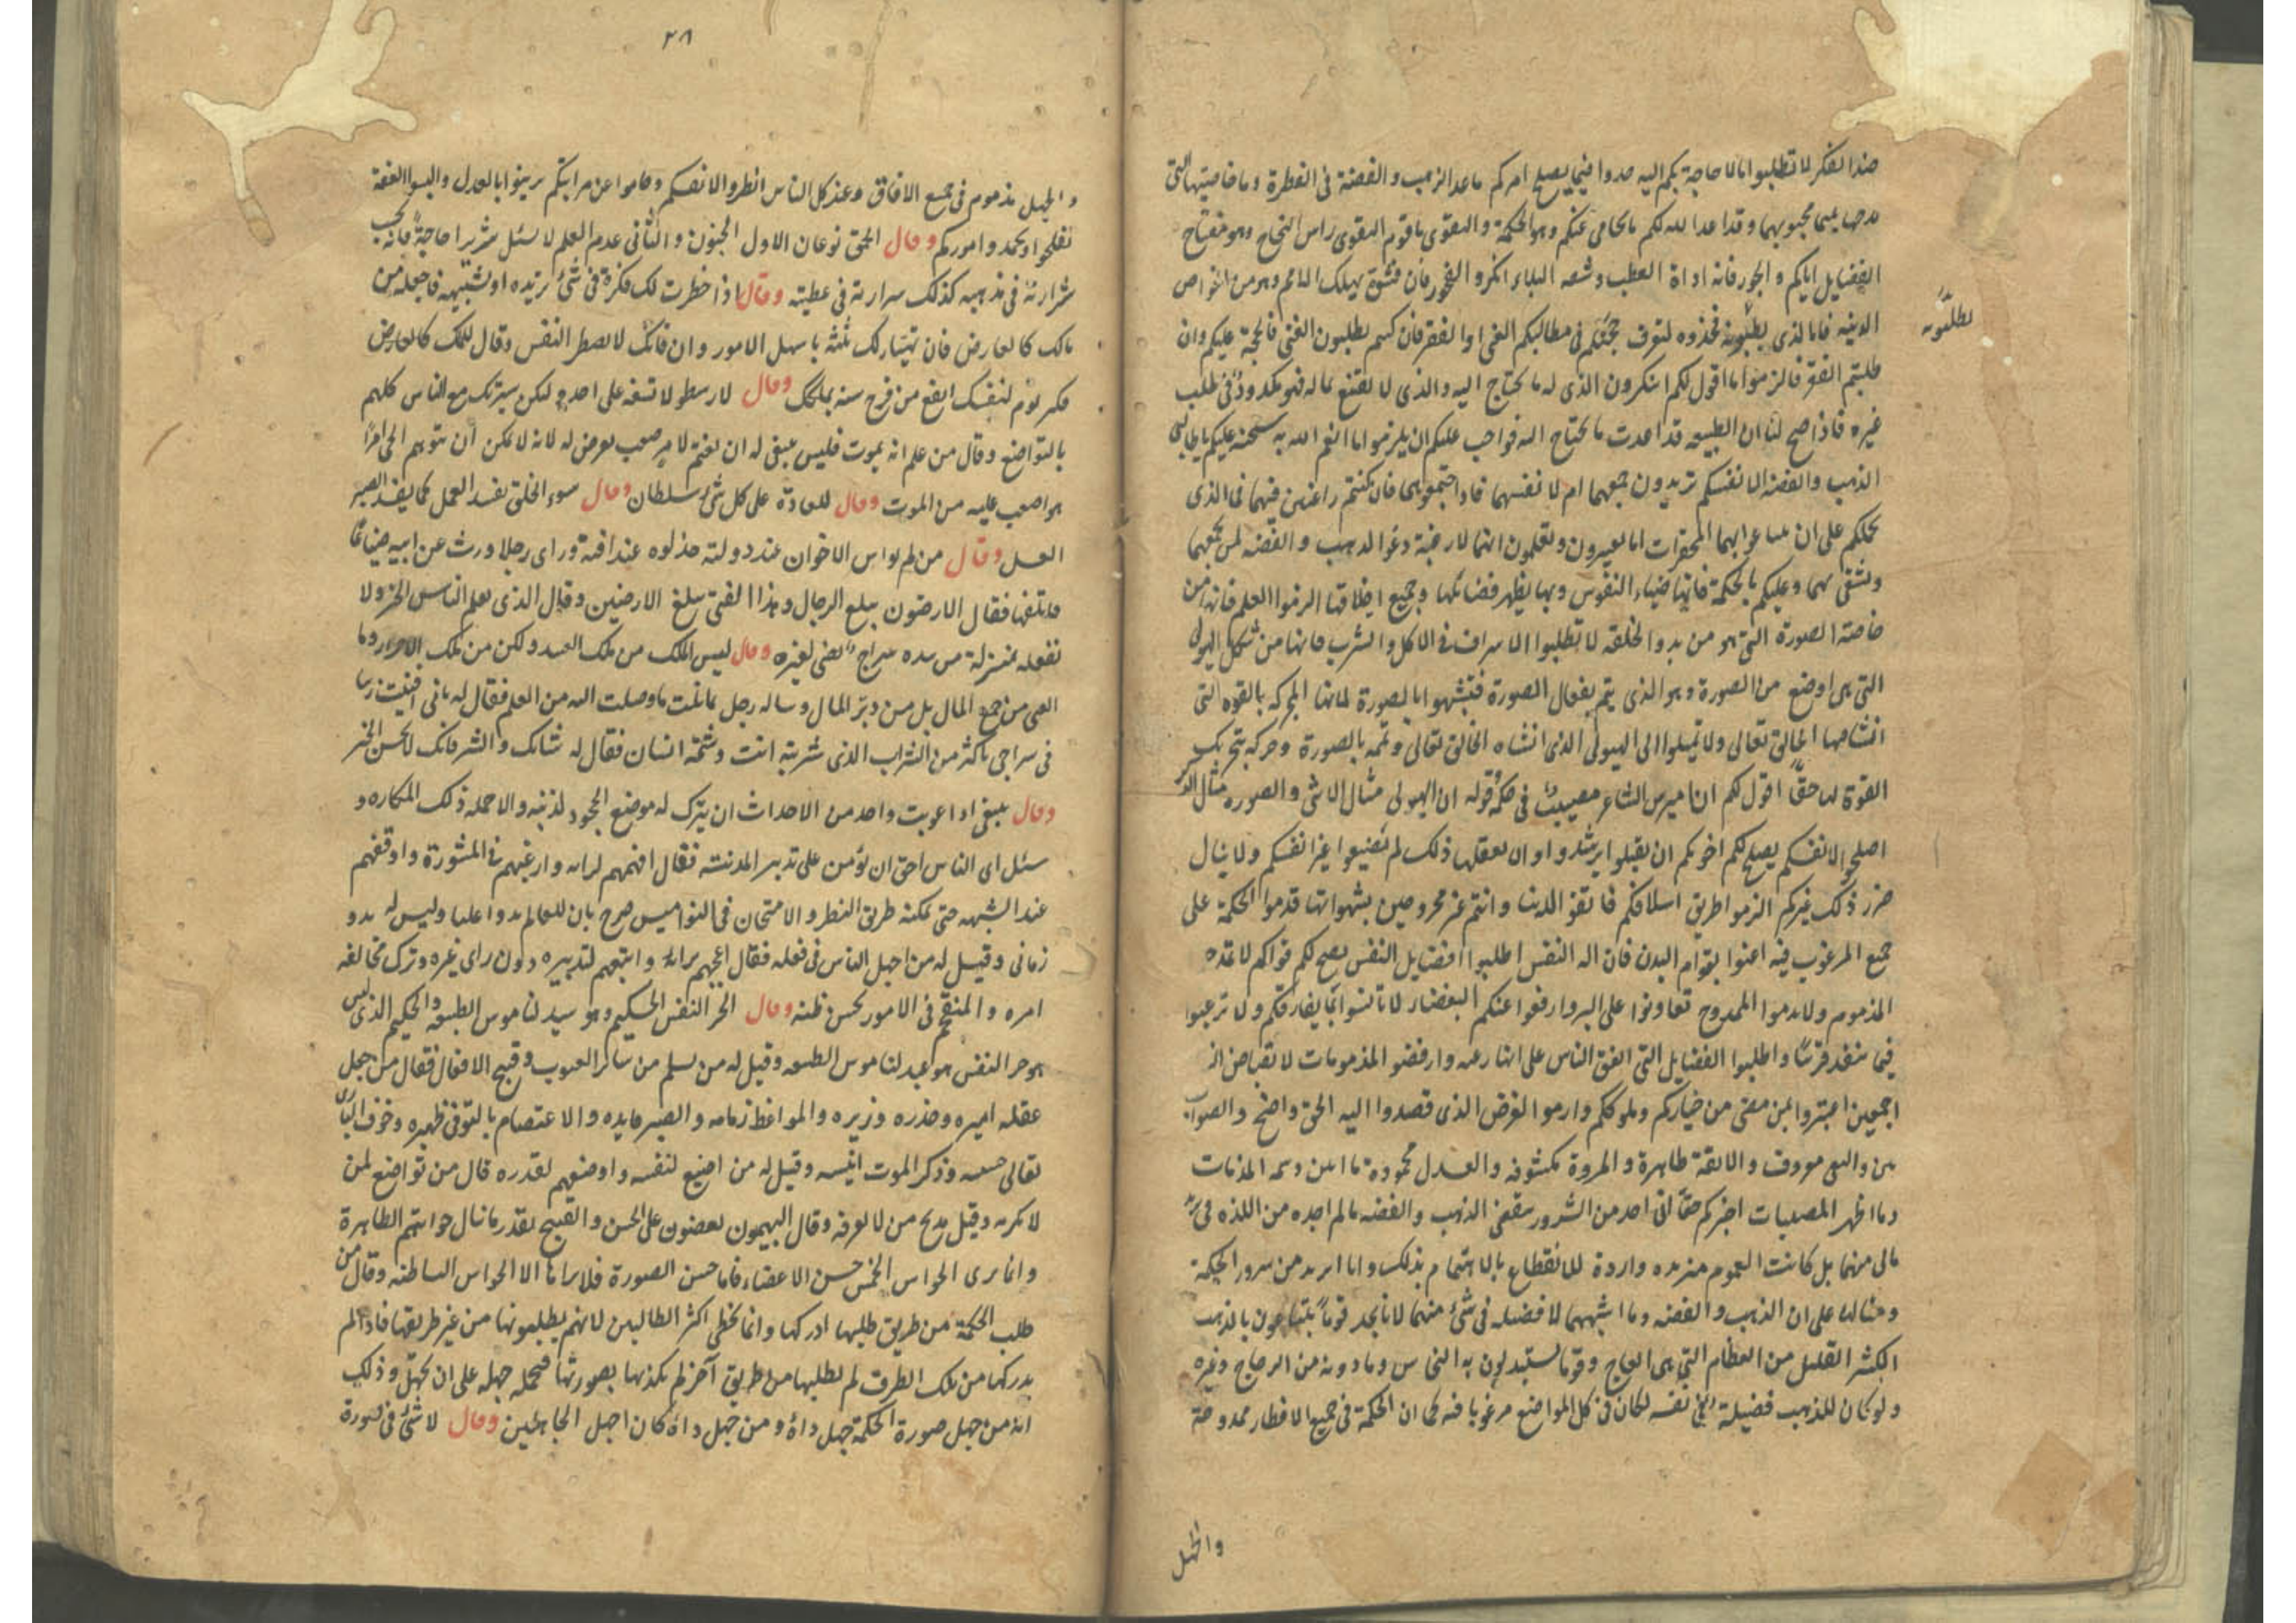 ضد الفكر لا تطلبوا ما لا حاجة بكم اليه خذوا فيما يصلح امركم ما عدا الذهب والفضة فى الفطرة وما خاصيتهما التى
مدحهما محبوبهما وقد اعد الله لكم ما يحامى عنكم وهو الحكمة والتقوى يا قوم التقوى راس النجاح وهو مفتاح
الفضايل اياكم والجور فانه اداة العطب البلاء المكر والفخر يهلك الدائم وهو من اخوات
يطلبونه
الدنيه فاما الذى يطلبونه فخذوه لتوق حجتكم فى مطالبكم الغنى او الفقر فان كنتم تطلبون الغنى فالحجة عليكم وان
طلبتم الفقر فالزموا ما اقول لكم اتنكرون الذى له ما يحتاج اليه والذى لا يقنع بما له فهو مكدود فى طلب
غيره فاذا صح لنا ان الطبيعه قد اعدت ما يحتاج اليه فواجب عليكم ان يلزموا ما انعم الله به سبحنه عليكم يا طالبى
الذهب والفضه الا نفسكم تريدون جمعهما ام لا نفسهما فاذا اجتمعوا فان كنتم راغبين فيهما فما الذى
يحملكم على ان بهما المحقرات اما تبصرون وتعلمون انهما لا رغبة دعوا الذهب والفضه لمن يجمعهما
ويشقى بهما وعليكم بالحكمة فانها ضياء النفوس وبها يظهر فضائلها وجميع اخلاقها الزموا العلم فانه من
خاصة الصورة التى هو من بدو الخلقه لا تطلبوا الاسراف فى الاكل والشرب فانها من شكل الهيولى
التى هى اوضع من الصورة وهو الذى يتم بفعال الصورة فتشبهوا بالصورة لما لها الحركه بالقوه التى
انشاها الخالق تعالى ولا تميلوا الى الهيولى الذى انشاه الخالق تعالى وتممه بالصورة وحركه بتحريك
القوة لها حقاً اقول لكم ان اميرس الشاعر مصيب فى قوله ان الهيولى مثال الانثى والصوره مثال الذكر
اصلحوا لانفسكم يصلح لكم اخرتكم ان تقبلوا ترشدوا وان لم تضيعوا غير انفسكم ولا ينال
ضرر ذلك غيركم الزموا طريق اسلافكم فاتقوا الدنيا وانتم غير محروصين بشهواتها قدموا الحكمة على
جميع المرغوب فيه اعتنوا بقوام البدن فانه اله النفس اطلبوا فضايل النفس يصح لكم قواكم لا تمدحوا
المذموم ولا تذموا الممدوح تعاونوا على البر وارفعوا عنكم البغضاء لا تانسوا بما يفارقكم ولا ترغبوا
فيما ينفد قريباً واطلبوا الفضايل التى اتفق الناس على وارفضوا المذمومات
اجمعين اعتبروا بمن مضى من خياركم وملوككم وارموا الغرض الذى قصدوا اليه الحق واضح والصواب
بين والبغى معروف والانفة ظاهرة والمروة مكشوفه والعدل محمودة
وما اظهر المصيبات اخبركم حقاً انى اجد من السرور ببغض الذهب والفضه ما لم اجده من اللذه فى
مالى منهما بل كانت الهموم متزيده واردة للانقطاع بالاهتمام بذلك وانا ازيد من سرور الحكمة
ومثاله على ان الذهب والفضه وما اشبههما لا فضيله فى شئ منهما لانا نجد قوماً يتبايعون بالذهب
الكثير القليل من العظام التى هى العاج وقوما يستبدلون به النحاس وما دونه من الزجاج وغيره
ولو كان للذهب فضيلة فى نفسه لكان فى كل المواضع مرغوبا فيه كما ان الحكمة فى جميع الاقطار ممدوحة
والجهل
٢٨
والجهل مذموم فى جميع الافاق وعند كل الناس انظروا لانفسكم وحاموا عن مراتبكم تزينوا بالعدل والبسوا العفة
تفلحوا وتحمدوا اموركم وقال الحمق نوعان الاول الجنون والثانى عدم العلم لا تسئل شريرا حاجةً فانه كحسب
شرارته فى مذهبه كذلك شرارته فى عطيته وقال اذا خطرت لك فكرة فى شئ تريده او تشتهيه فاجعله من
مالك كالعارض فان تهيا لك نلته باسهل الامور وان فاتك لا تضطر النفس وقال للملك كالعارض
فكر يوم لنفسك انفع من فرح سنه بملكك وقال لارسطو لا تسفه على احد ولتكن سيرتك مع الناس كلهم
بالتواضع وقال من علم انه يموت فليس ينبغى له ان يغتم لامر صعب يعرض له لانه لا يمكن ان يتوهم الحى امرًا
هو اصعب عليه من الموت وقال للعادة على كل شئ سلطان وقال سوء الخلق يفسد العمل كما يفسد الصبر
العسل وقال من لم يواس الاخوان عند دولته خذلوه عند فاقته وراى رجلا ورث عن ابيه ضياعًا
فاتلفها فقال الارضون تبلع الرجال وهذا الفتى يبلع الارضين وقال الذى يعلم الناس الخير ولا
يفعله بمنزلة من بيده سراج يضئ لغيره وقال ليس الملك من ملك العبيد ولكن من ملك الاحرار وما
الغنى من جمع المال بل من دبر المال وساله رجل بما نلت ما وصلت اليه من العلم فقال له بانى افنيت زيتا
فى سراجى باكثر من الشراب الذى شربته انت وشتمه انسان فقال له شانك والشر فانك لا تحسن الخير
وقال ينبغى اذا عوتب واحد من الاحداث ان يترك له موضع الجحود لذنبه والا حمله ذلك المكاره و
سئل اى الناس احق ان يؤمن على تدبير المدينه فقال افهمهم لرايه وارغبهم فى المشورة واوقفهم
عند الشبهه حتى يمكنه طريق النظر والامتحان فى النواميس صرح بان للعالم بدوا عليا وليس له بدو
زمانى وقيل له من اجهل الناس فى فعله فقال اعجبهم برايه واتبعهم لتدبيره دون راى غيره وترك مخالفه
امره والمتقحم فى الامور بحسن ظنه وقال الحر النفس الحكيم وهو سيد لناموس الطبيعه والحكيم الذى ليس
هو حر النفس هو عبد لناموس الطبيعه وقيل له من يسلم من ساير العيوب وقبيح الافعال فقال من جعل
عقله اميره وحذره وزيره والمواعظ زمامه والصبر قايده والاعتصام بالتوقى ظهيره وخوف البارى
تعالى جليسه وذكر الموت انيسه وقيل له من اضيع لنفسه واوضعهم لقدره قال من تواضع لمن
لا يكرمه وقبل مديح من لا يعرفه وقال البهيميون يقضون على الحسن والقبيح بقدر ما ينال حواسهم الظاهرة
وانما يرى الحواس الخمس حسن الاعضاء فاما حسن الصورة فلا يراها الا الحواس الباطنه وقال من
طلب الحكمة من طريق طلبها ادركها وانما يخطى اكثر الطالبين لانهم يطلبونها من غير طريقها فاذا لم
يدركها من تلك الطرق لم يطلبها من طريق آخر لم يكذبها بصورتها فيحمله جهله على ان يجهل وذلك
انه من جهل صورة الحكمة جهل ذاته ومن جهل ذاته كان اجهل الجاهلين وقال لا شئ فى صورة